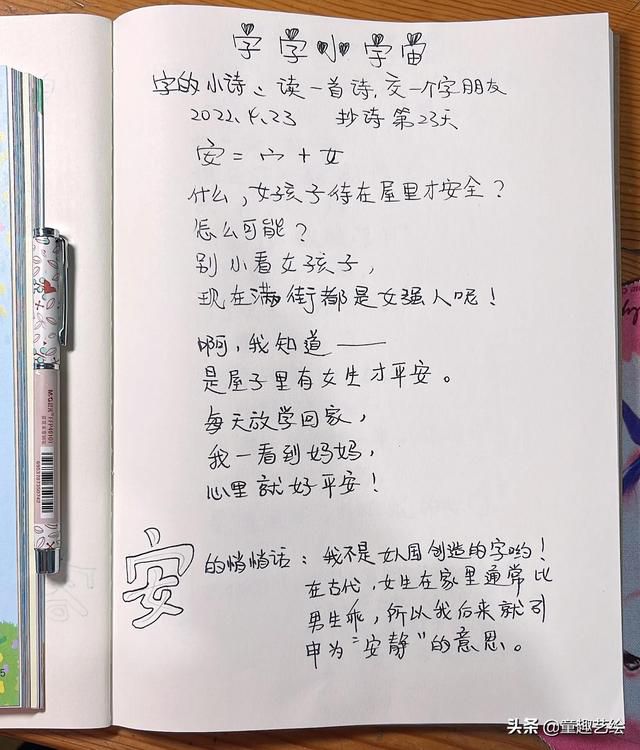 字字小宇宙
字的小诗：读一首诗，交一个字朋友
2022.4.23 抄诗第23天
安=宀+女
什么，女孩子待在屋里才安全？
怎么可能？
别小看女孩子，
现在满街都是女强人呢！
啊，我知道——
是屋子里有女生才平安。
每天放学回家，
我一看到妈妈，
心里就好平安！
安的悄悄话：我不是女人国创造的字哟！
在古代，女生在家里通常比
男生乖，所以我后来就引
申为“安静”的意思。
M&G
6953787350742
头条 @童趣艺绘